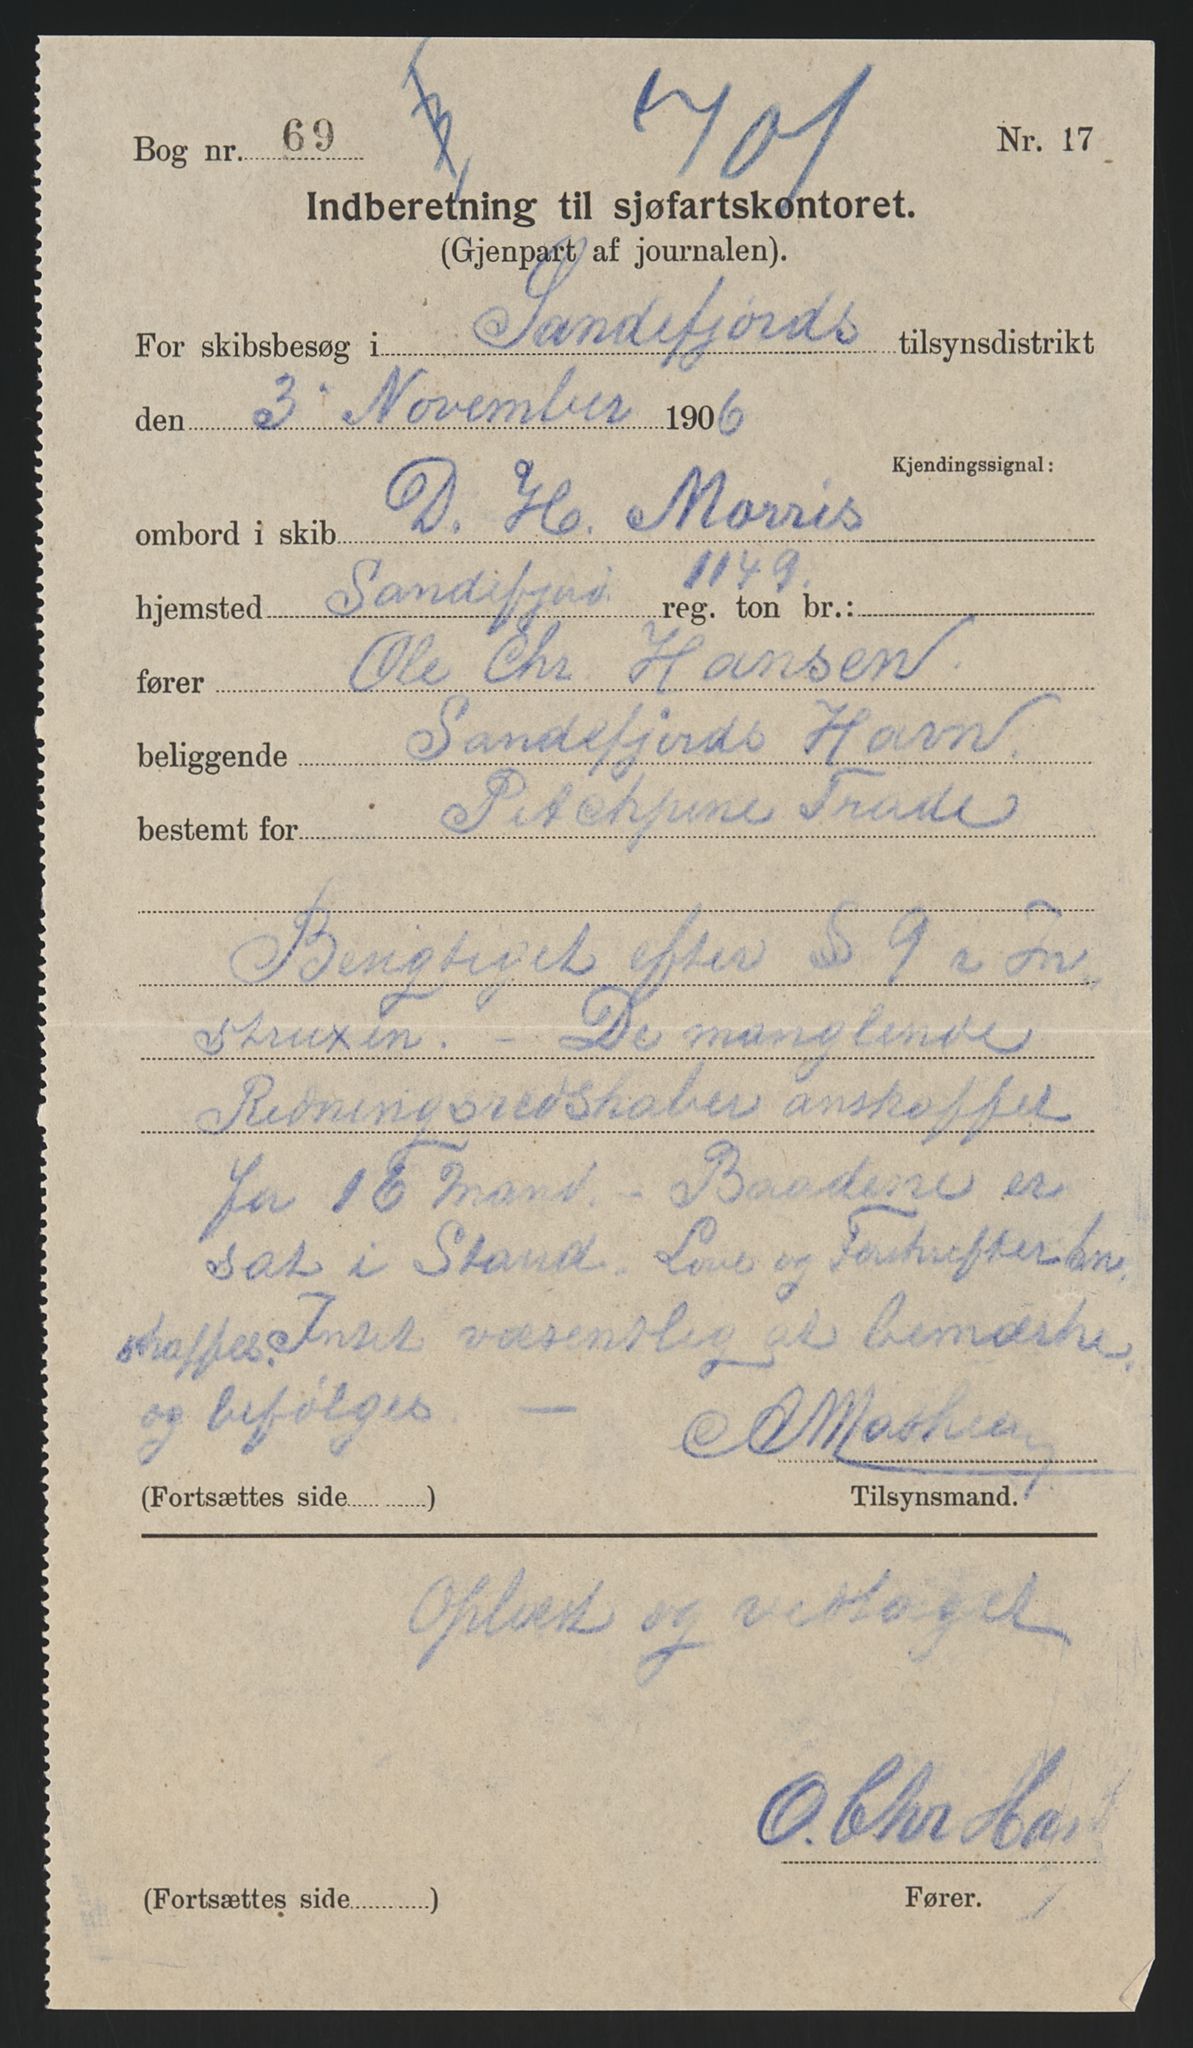 Bog nr. 69
701
Nr. 17
Indberetning til sjøfartskontoret.
(Gjenpart af journalen).
For skibsbesøg i Sandefjords tilsynsdistrikt
den 3. November 1906
Kjendingssignal:
ombord i skib D. H. Morris
hjemsted Sandefjord. reg. ton br.: 1149.
fører Ole Chr. Hansen.
beliggende Sandefjords Havn.
bestemt for Pitchpine Trade
Besigtiget efter § 9 i In-
struxen. - De manglende
Redningsredskaber anskaffet
for 16 Mand. - Baadene er
sat i Stand. Love og Forskrifter an-
skaffes. Intet væsentlig at bemærke.
og befølges. —
(Fortsættes side )
Tilsynsmand.
Oplæst og vedtaget
O. Chr Hans
(Fortsættes side )
Fører.